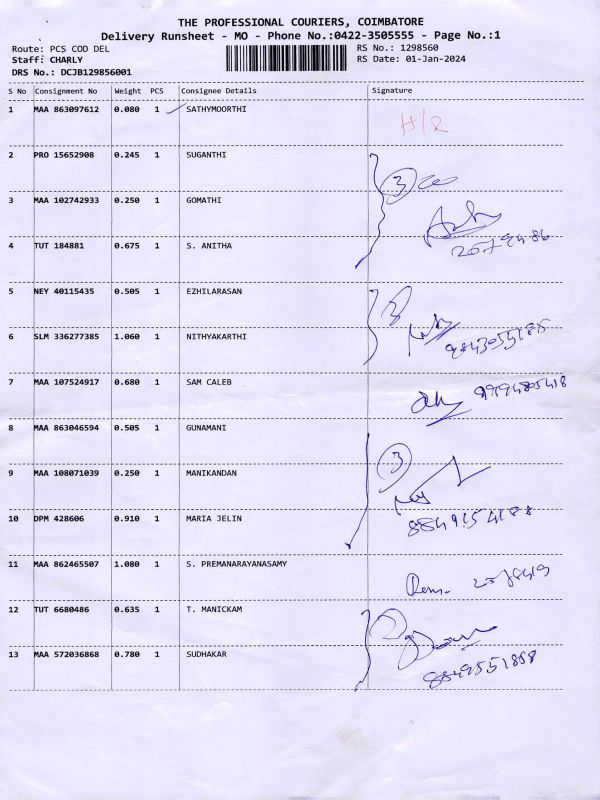 THE PROFESSIONAL COURIERS, COIMBATORE
Delivery Runsheet - MO - Phone No.:0422-3505555 - Page No.:1
Route: PCS COD DEL
Staff: CHARLY
DRS No.: DCJB129856001
RS No.: 1298560
RS Date: 01-Jan-2024
S No Consignment No Weight PCS Consignee Details Signature
1 MAA 863097612 0.080 1 SATHYMOORTHI H/R
2 PRO 15652908 0.245 1 SUGANTHI 3
3 MAA 102742933 0.250 1 GOMATHI
4 TUT 184881 0.675 1 S. ANITHA
5 NEY 40115435 0.505 1 EZHILARASAN
6 SLM 336277385 1.060 1 NITHYAKARTHI
7 MAA 107524917 0.680 1 SAM CALEB
8 MAA 863046594 0.505 1 GUNAMANI 3
9 MAA 108071039 0.250 1 MANIKANDAN
10 DPM 428606 0.910 1 MARIA JELIN
11 MAA 862465507 1.080 1 S. PREMANARAYANASAMY
12 TUT 6680486 0.635 1 T. MANICKAM
13 MAA 572036868 0.780 1 SUDHAKAR